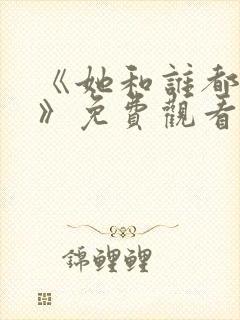 《她和誰都
》免費觀看
錦鯉鯉